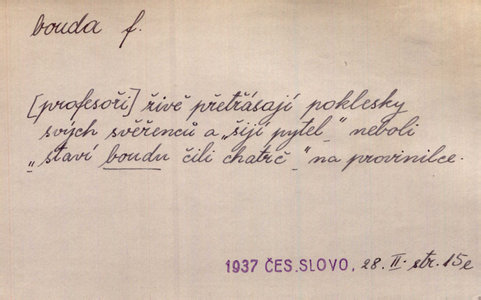 bouda f.
[profesoři] řivě přetřásají poklesky
svých svěřenců a „šijí pytel" neboli
„staví boudu čili chatrč" na provinilce.
1937 ČES. SLOVO, 28. II. str. 15e